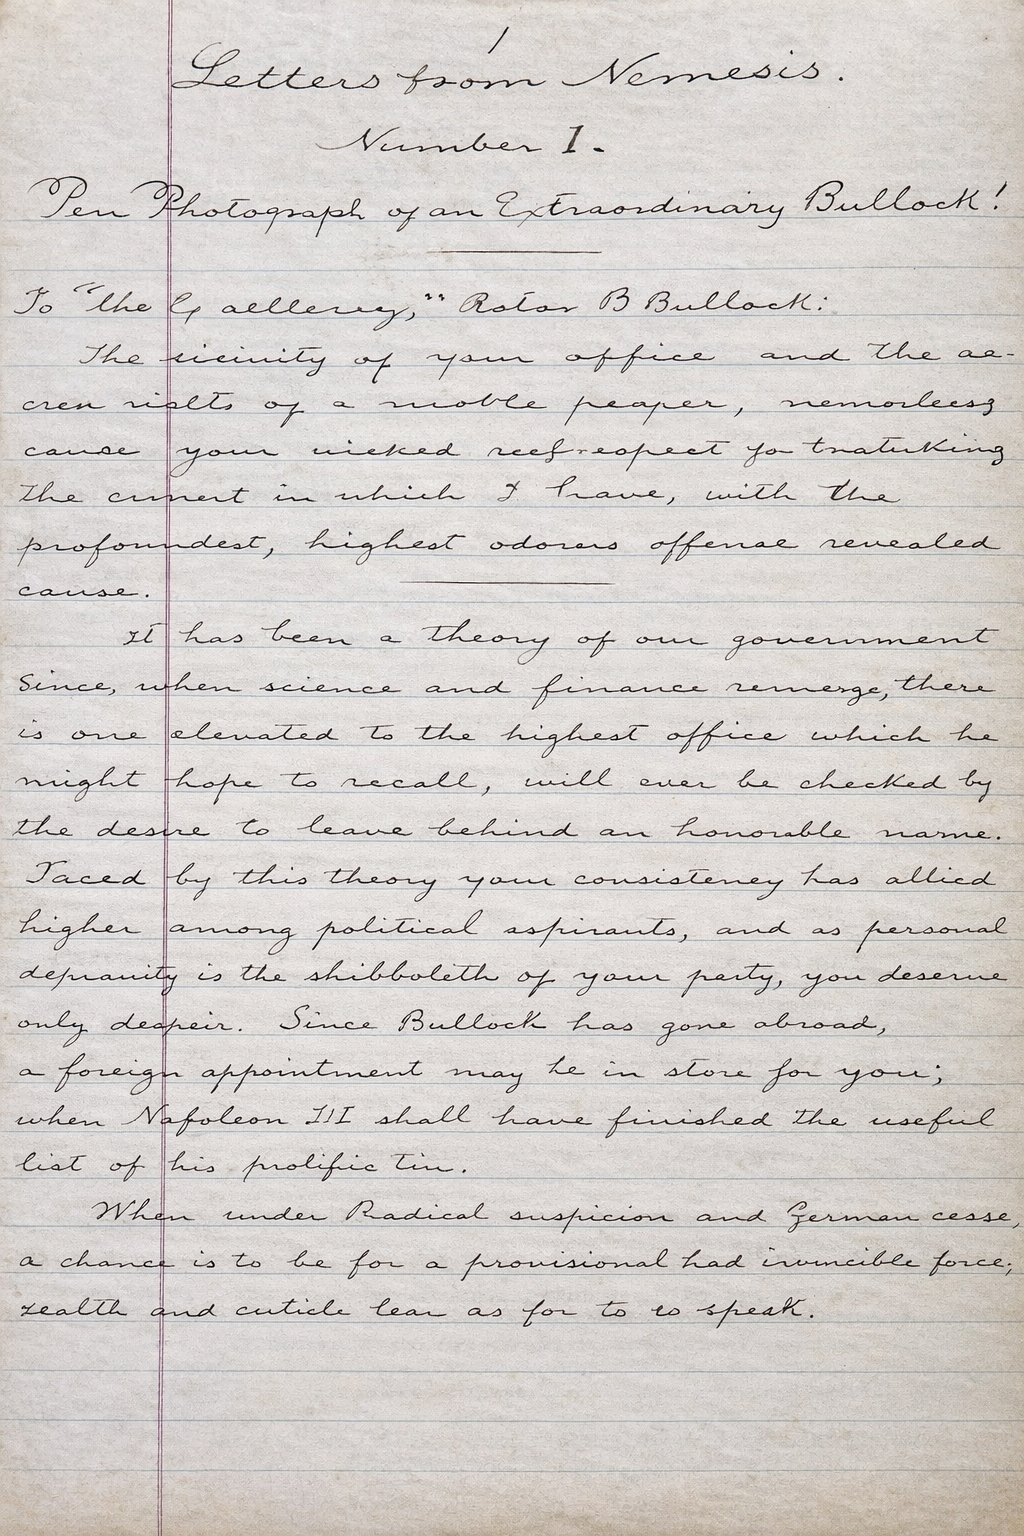 1
Letters from Nemesis.
Number 1.
Pen Photograph of an Extraordinary Bullock!
To "the Bullock:
The of your office and the ae-
cren of a peaper,
cause your
the in which I have, with the
profoundest, highest odorus offense revealed
cause.
It has been a theory of our government
Since, when science and finance remerge, there
is one elevated to the highest office which he
might hope to recall, will ever be checked by
the desire to leave behind an honorable name.
by this theory your consistency has allied
higher among political aspirants, and as personal
depravity is the shibboleth of your party, you deserve
only despeir. Since Bullock has gone abroad,
a foreign appointment may be in store for you;
when Napoleon III shall have finished the useful
list of his prolific tin.
When under Radical suspicion and German cesse,
a chance is to be for a provisional had invincible force;
and cuticle as for to so speak.